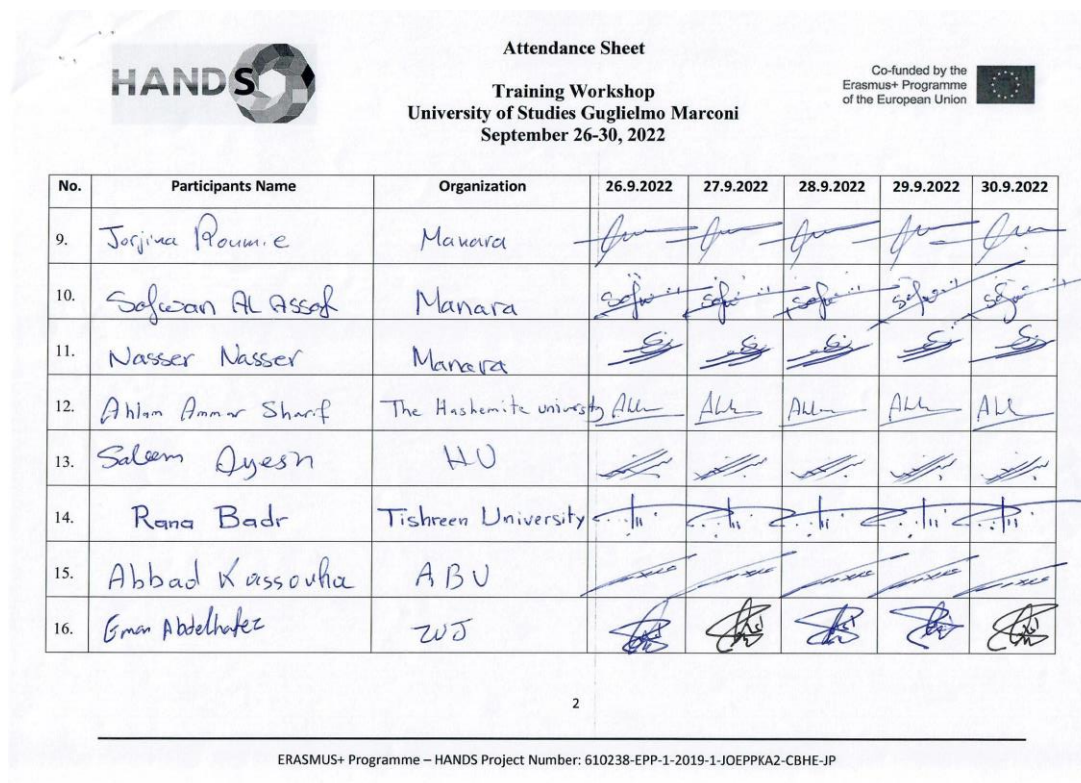 HANDS
Attendance Sheet
Training Workshop
University of Studies Guglielmo Marconi
September 26-30, 2022
Co-funded by the
Erasmus+ Programme
of the European Union
No. Participants Name Organization 26.9.2022 27.9.2022 28.9.2022 29.9.2022 30.9.2022
9. Jorjina Roumie Manara
10. Safwan AL Assaf Manara
11. Nasser Nasser Manara
12. Ahlam Ammar Sharif The Hashemite university
13. Saleem Ayesh HU
14. Rana Badr Tishreen University
15. Abbad Kassouha ABU
16. Eman Abdelhafez ZUJ
2
ERASMUS+ Programme – HANDS Project Number: 610238-EPP-1-2019-1-JOEPPKA2-CBHE-JP